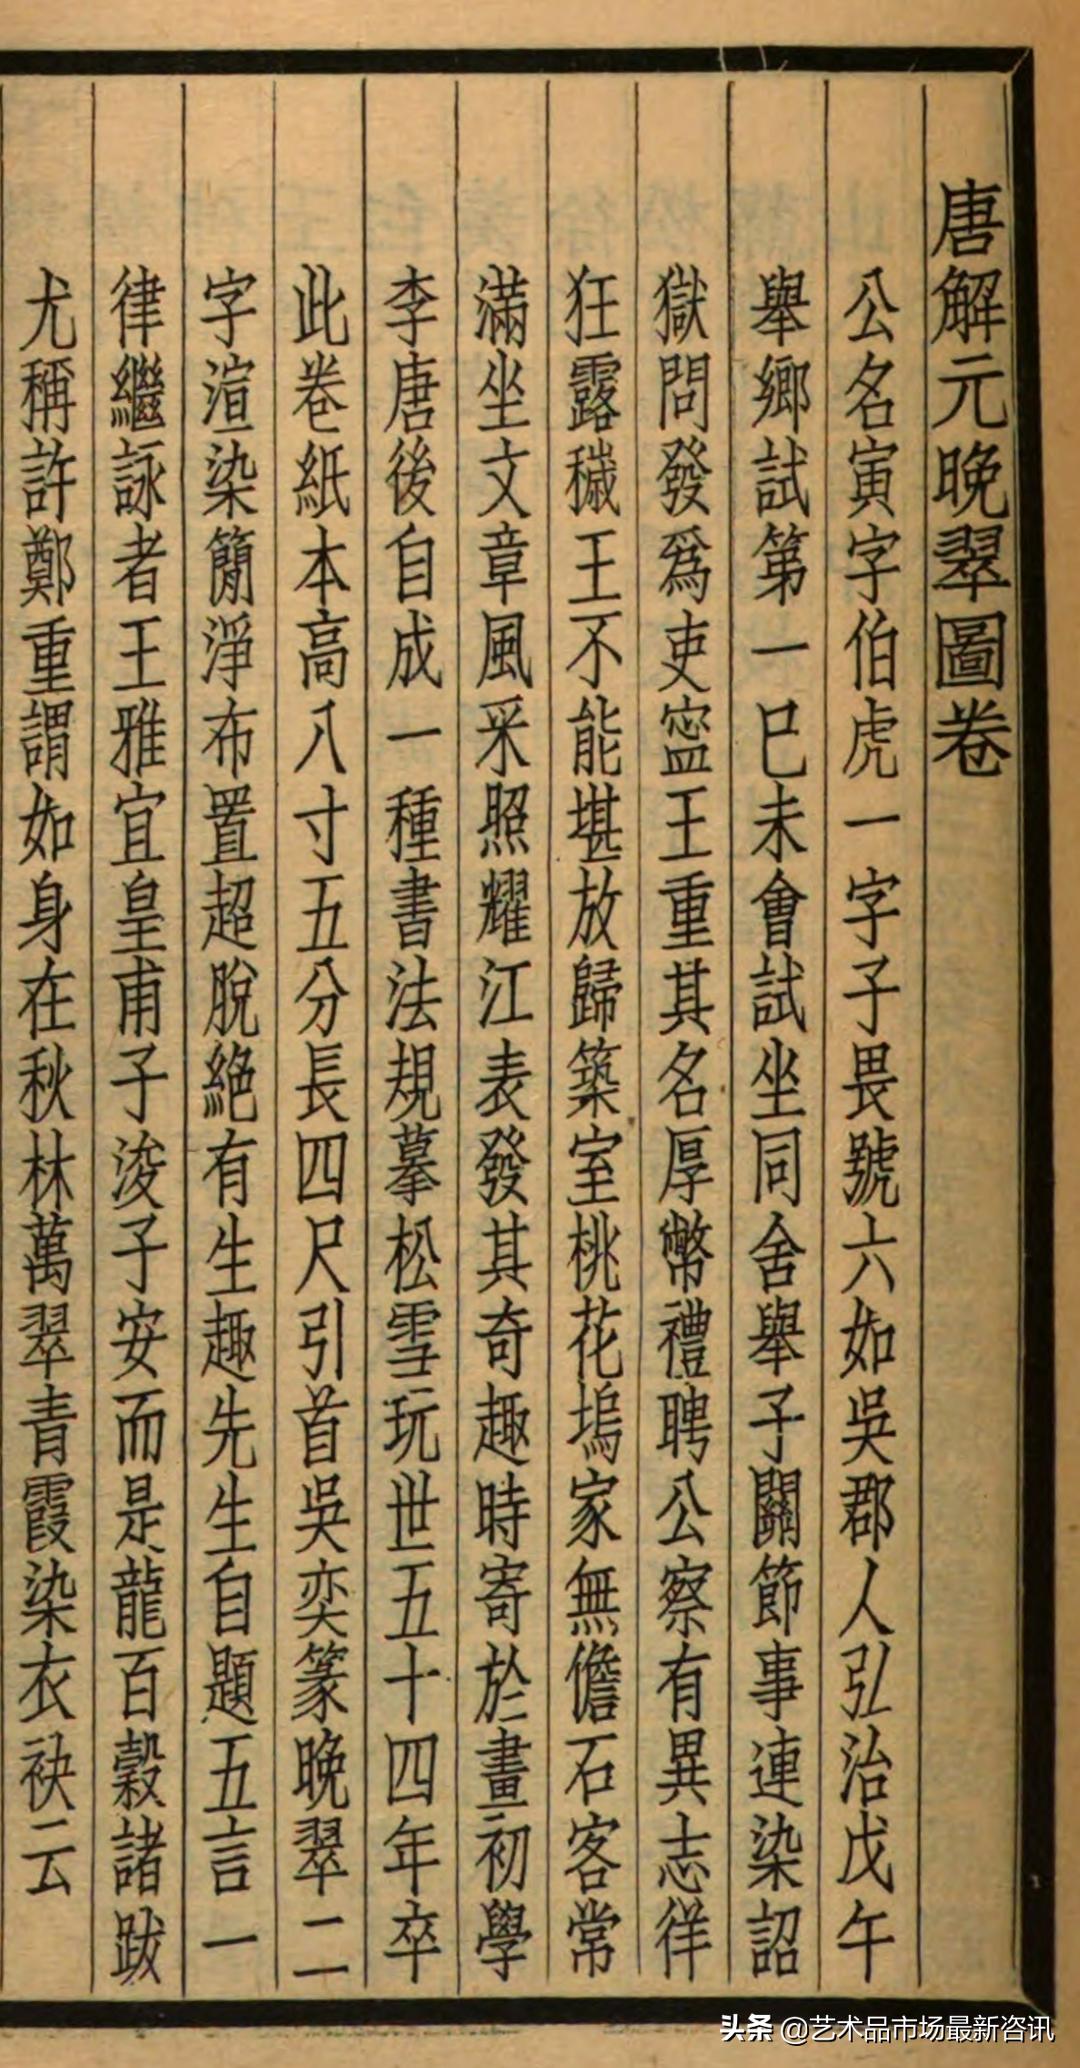 唐解元晚翠圖卷
公名寅字伯虎一字子畏號六如吳郡人弘治戊午
舉鄉試第一巳未會試坐同舍舉子關節事連染詔
獄問發爲吏寍王重其名厚幣禮聘公察有異志徉
狂露穢王不能堪放歸築室桃花塢家無儋石客常
滿坐文章風采照耀江表發其奇趣時寄於畫初學
李唐後自成一種書法規摹松雪玩世五十四年卒
此卷紙本高八寸五分長四尺引首吳奕篆晚翠二
字渲染簡淨布置超脫絕有生趣先生自題五言一
律繼詠者王雅宜皇甫子浚子安而是龍百穀諸跋
尤稱許鄭重謂如身在秋林萬翠青霞染衣袂云
头条 @艺术品市场最新咨讯